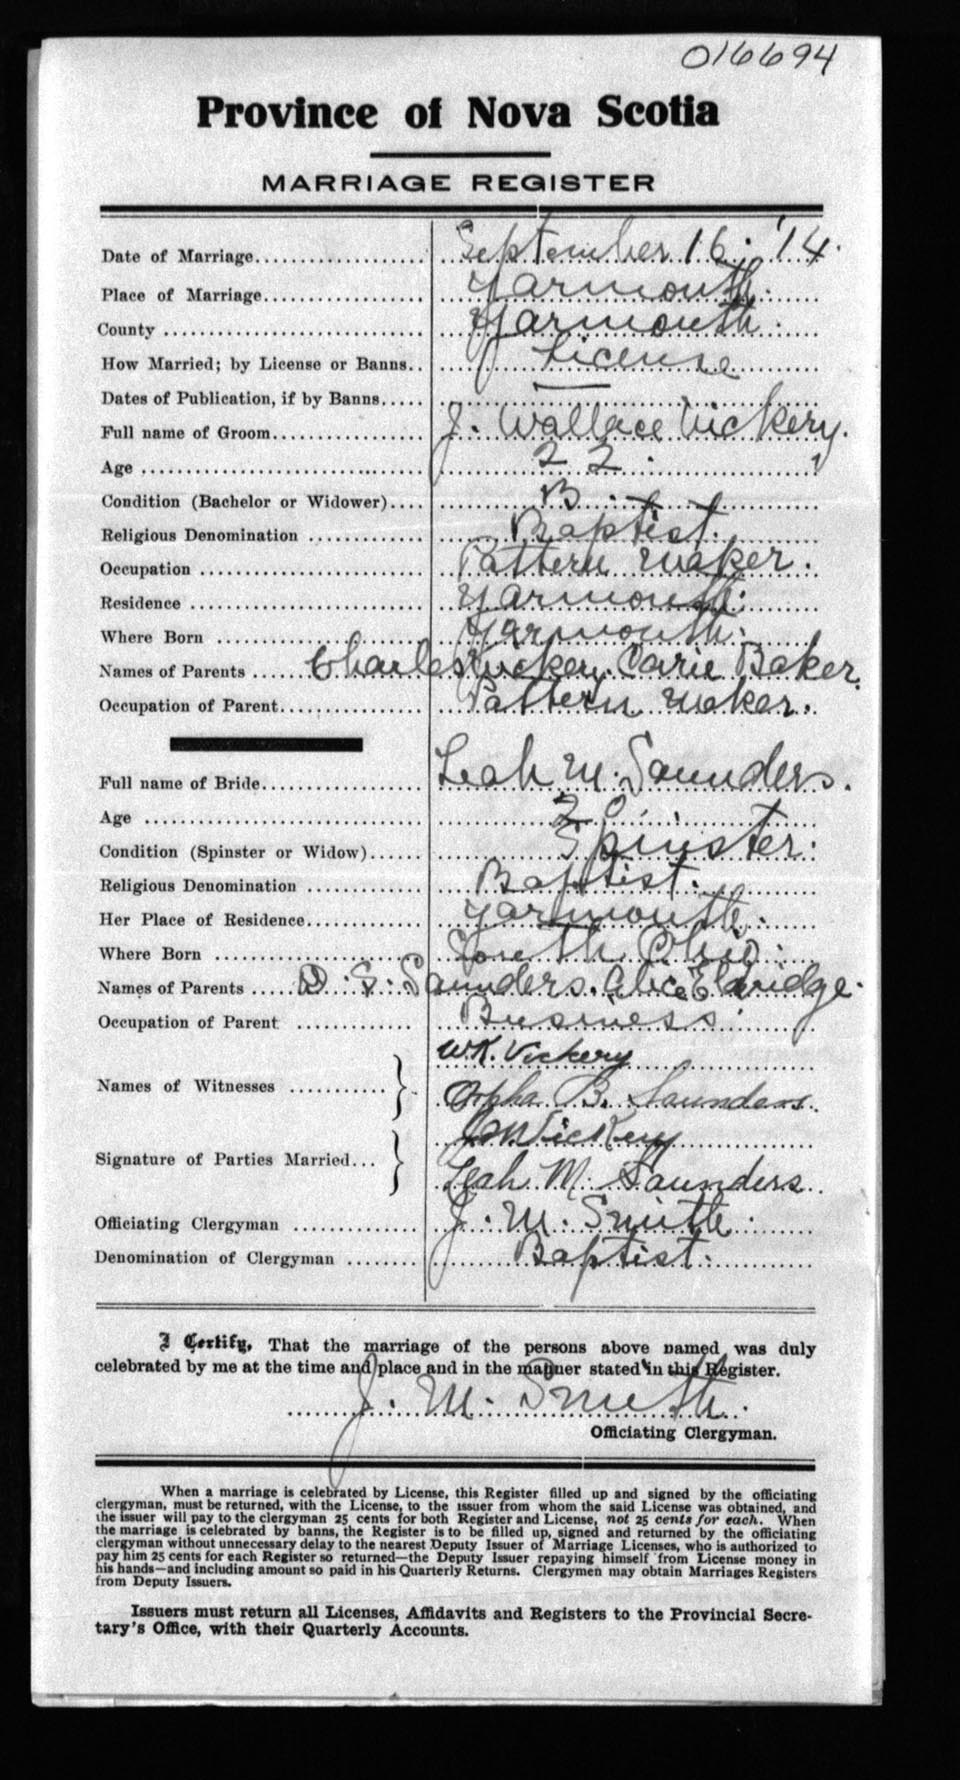 016694
Province of Nova Scotia
MARRIAGE REGISTER
Date of Marriage.................. September 16. '14.
Place of Marriage.................. Yarmouth.
County ............................ Yarmouth.
How Married; by License or Banns.. License
Dates of Publication, if by Banns..... —
Full name of Groom.................. J. Wallace Vickery.
Age ............................... 22.
Condition (Bachelor or Widower).... B.
Religious Denomination ............ Baptist.
Occupation ........................ Pattern maker.
Residence ......................... Yarmouth.
Where Born ........................ Yarmouth.
Names of Parents ..... Charles Vickery. Carie Baker.
Occupation of Parent............... Pattern maker.
Full name of Bride................. Leah M. Saunders.
Age ............................... 20.
Condition (Spinster or Widow)...... Spinster.
Religious Denomination ............ Baptist.
Her Place of Residence............. Yarmouth.
Where Born ........................ South Ohio.
Names of Parents ..... D. S. Saunders. Alice Eldridge.
Occupation of Parent .............. Business.
W.K. Vickery
Names of Witnesses ............
Orpha B. Saunders.
J W Vickery
Signature of Parties Married...
Leah M. Saunders.
Officiating Clergyman ............. J. M. Smith.
Denomination of Clergyman ........ Baptist.
I Certify, That the marriage of the persons above named was duly
celebrated by me at the time and place and in the manner stated in this Register.
J. M. Smith.
Officiating Clergyman.
When a marriage is celebrated by License, this Register filled up and signed by the officiating
clergyman, must be returned, with the License, to the issuer from whom the said License was obtained, and
the issuer will pay to the clergyman 25 cents for both Register and License, not 25 cents for each. When
the marriage is celebrated by banns, the Register is to be filled up, signed and returned by the officiating
clergyman without unnecessary delay to the nearest Deputy Issuer of Marriage Licenses, who is authorized to
pay him 25 cents for each Register so returned—the Deputy Issuer repaying himself from License money in
his hands—and including amount so paid in his Quarterly Returns. Clergymen may obtain Marriages Registers
from Deputy Issuers.
Issuers must return all Licenses, Affidavits and Registers to the Provincial Secre-
tary's Office, with their Quarterly Accounts.